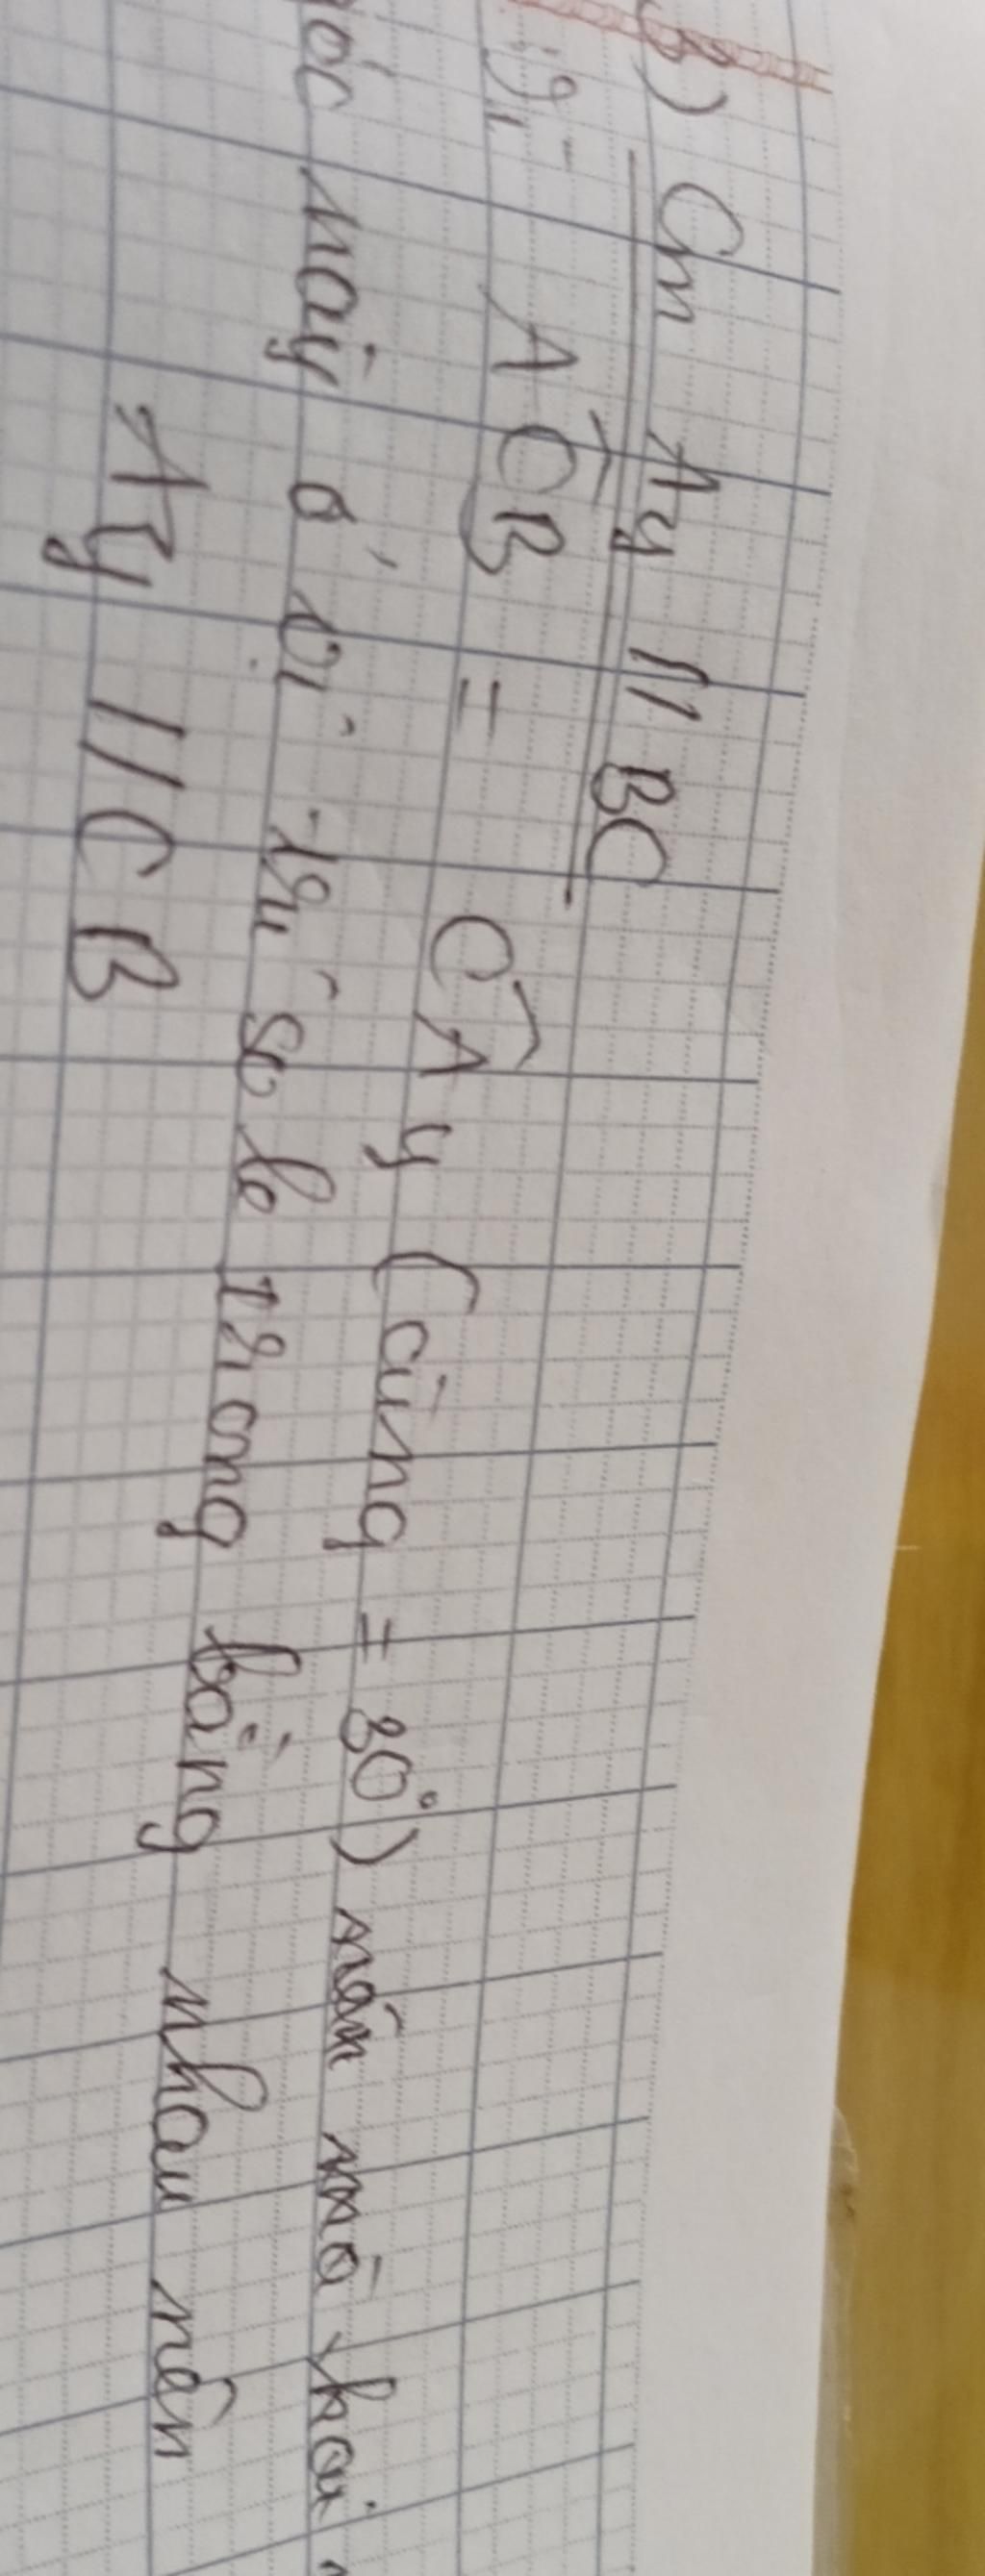 b) Cm Ay // BC
Vì ACB = CAy (cùng = 30°) nên mà hai
góc này ở vị trí so le trong bằng nhau nên
Ay // CB